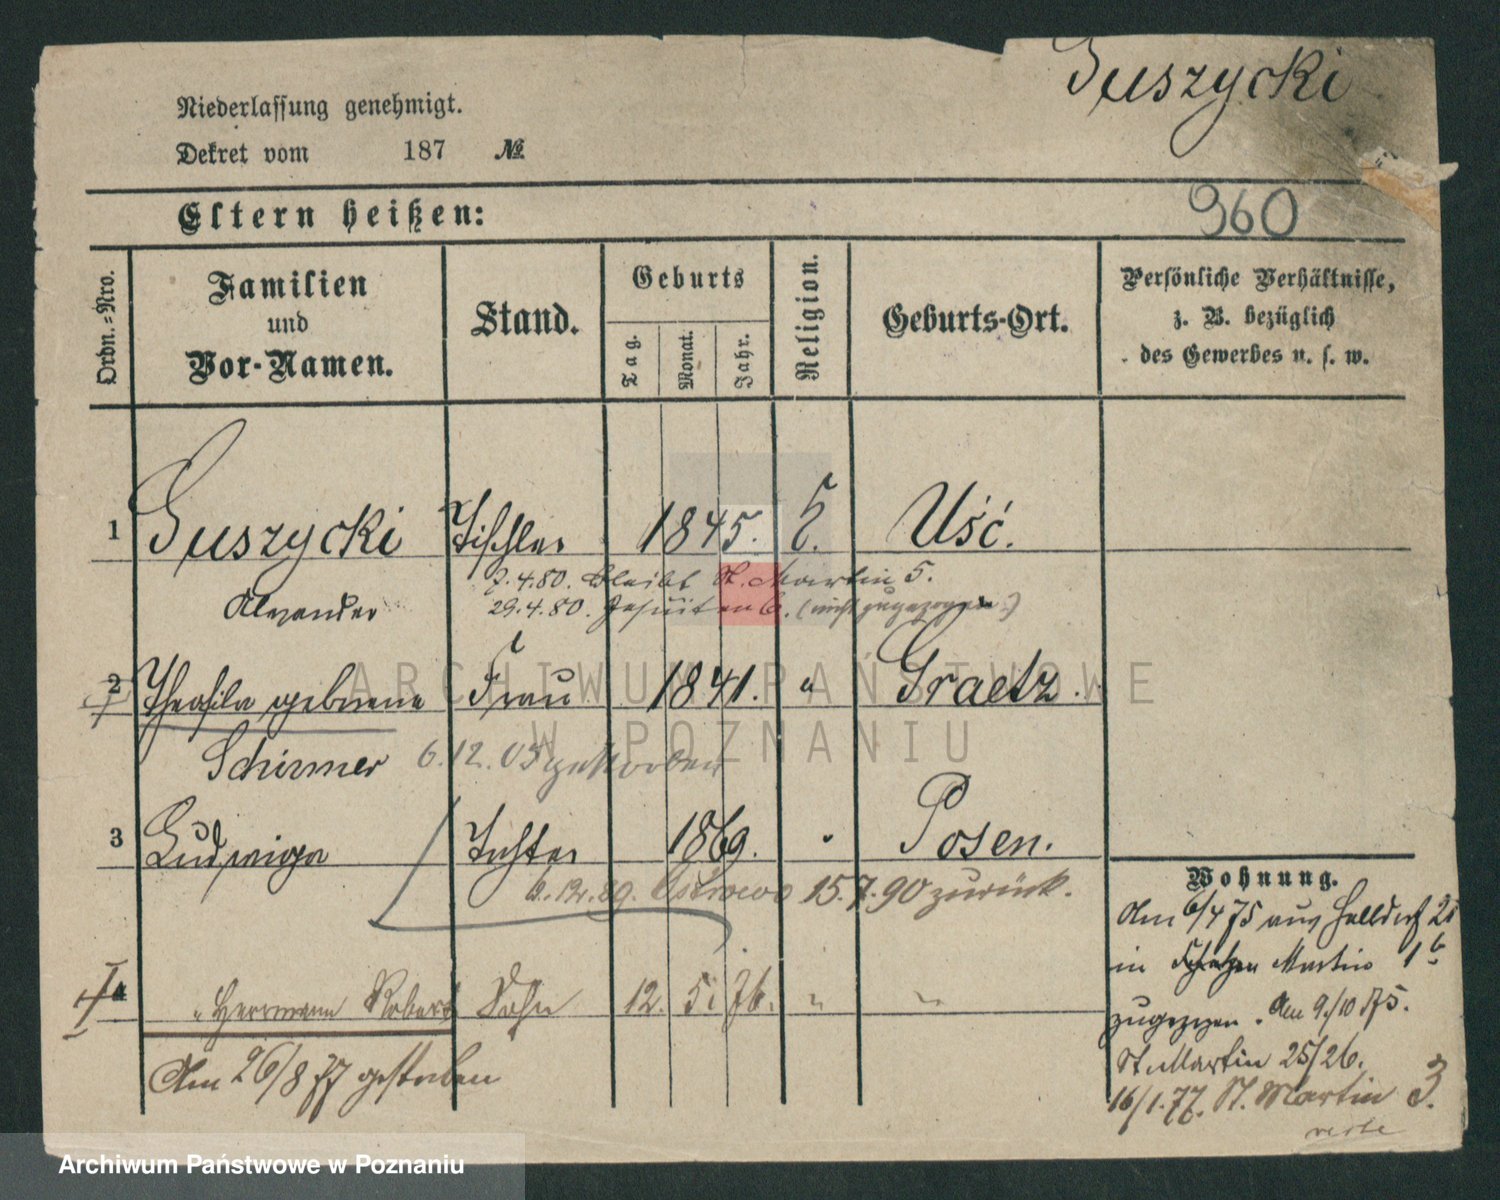 Guszycki
Niederlassung genehmigt.
Dekret vom 187 №
960
Eltern heißen:
Ordn.=Nro.
Familien
und
Vor-Namen.
Stand.
Geburts
Tag.
Monat.
Jahr.
Religion.
Geburts-Ort.
Persönliche Verhältnisse,
z. B. bezüglich
des Gewerbes u. s. w.
1 Guszycki Tischler 1845. Uść.
Alexander
7.4.80. bleibt St. Martin 5.
29.4.80. Jesuiten 6. (nicht zugezogen)
2 Theofila geborene Frau 1841. " Graetz.
Schirmer 6.12.05 gestorben
3 Ludwiga Tochter 1869. " Posen.
6.12.89. Ostrowo 15.7.90 zurück.
4 " Herrmann Robert Sohn 12. 5. 76. " "
Am 26/8 77 gestorben
Wohnung.
Am 6/4 75 aus Halldorf 25
in Martin 1b
zugezogen. Am 9/10 75.
St Martin 25/26.
16/1.77. St. Martin 3.
ARCHIWUM PAŃSTWOWE
W POZNANIU
Archiwum Państwowe w Poznaniu